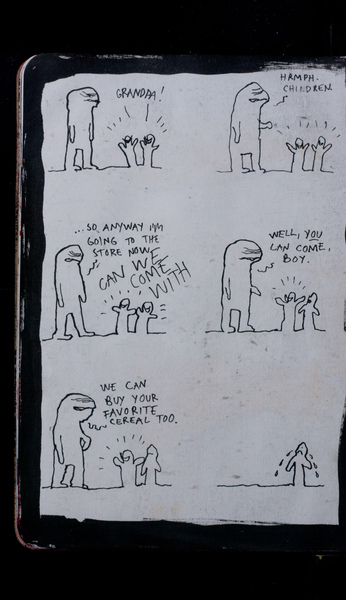 GRANDPA!
HRMPH.
CHILDREN.
...SO, ANYWAY I'M
GOING TO THE
STORE NOW.
CAN WE
COME
WITH
WELL, YOU
CAN COME,
BOY.
WE CAN
BUY YOUR
FAVORITE
CEREAL TOO.